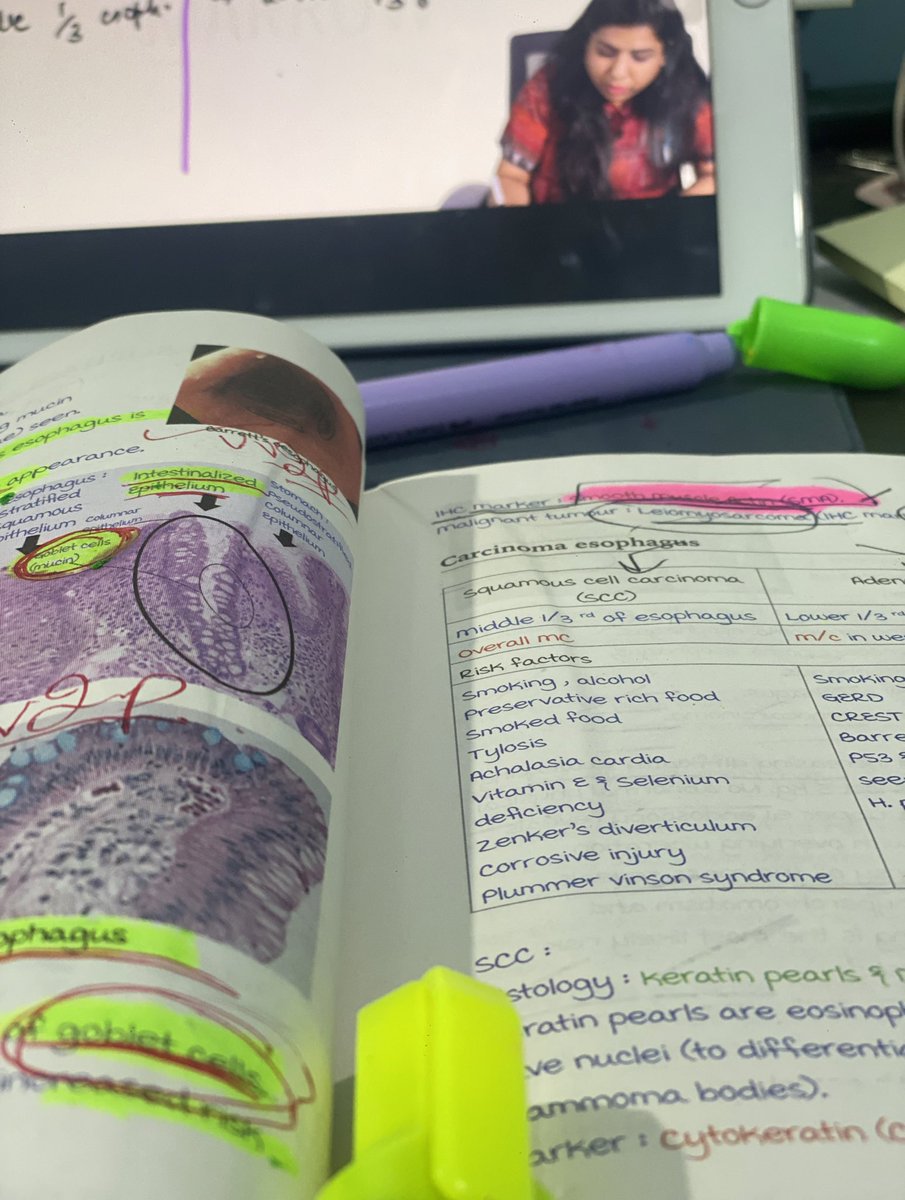 1/3
1/3
mucin
seen.
esophagus is
appearance.
Intestinalized
Epithelium
Stomach:
pseudostratified
columnar
epithelium
stratified
squamous
epithelium
columnar
epithelium
Goblet cells
(mucin)
of goblet cells
increased risk
IHC marker : Smooth muscle actin (SMA).
malignant tumour : Leiomyosarcoma, IHC
Carcinoma esophagus
Squamous cell carcinoma
(SCC)
middle 1/3 rd of esophagus
Lower 1/3 rd
overall mc
m/c in we
Risk factors
Smoking, alcohol
Preservative rich food
Smoked food
Tylosis
Achalasia cardia
Vitamin E & Selenium
deficiency
Zenker's diverticulum
Corrosive injury
Plummer vinson syndrome
Smoking
GERD
CREST
Barre
P53
see
H.
SCC :
stology : Keratin pearls &
ratin pearls are eosinop
ve nuclei (to differenti
ammoma bodies).
arker : Cytokeratin (c